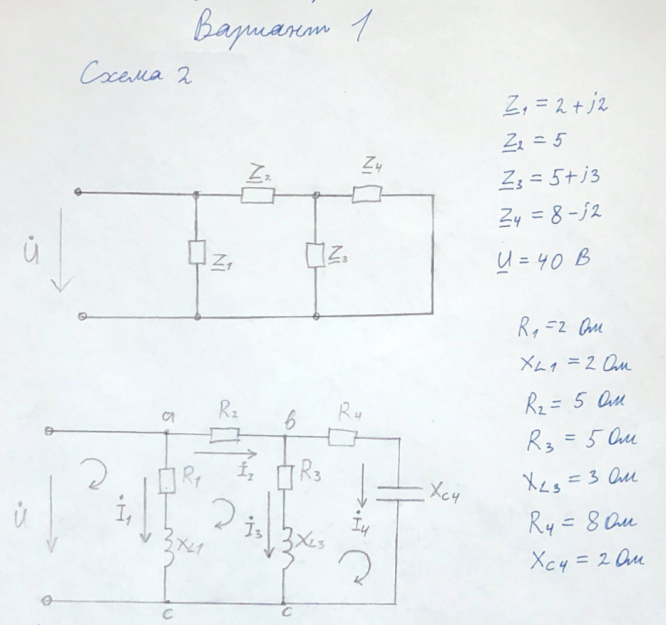 Вариант 1
Схема 2
Z1 = 2 + j2
Z2 = 5
Z3 = 5 + j3
Z4 = 8 - j2
U = 40 В
Z2 Z4
U̇ Z1 Z3
R1 = 2 Ом
XL1 = 2 Ом
R2 = 5 Ом
R3 = 5 Ом
XL3 = 3 Ом
R4 = 8 Ом
XC4 = 2 Ом
a R2 b R4
İ2
R1 R3
XC4
U̇ İ1 İ3 İ4
XL1 XL3
c c